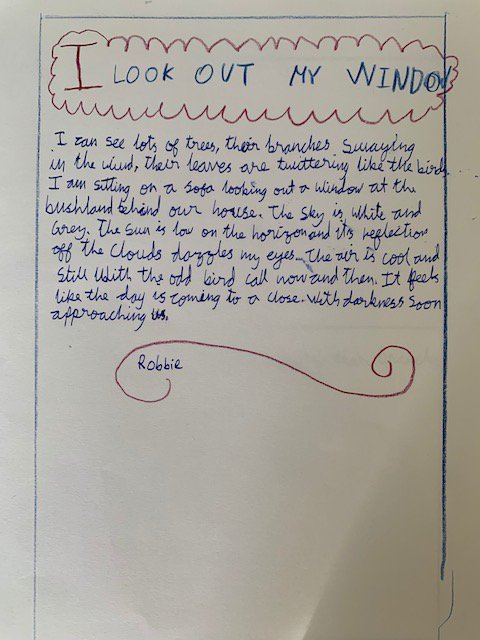 I LOOK OUT MY WINDOW
I can see lots of trees, their branches. Swaying
in the wind, their leaves are twittering like the birds
I am sitting on a sofa looking out a window at the
bushland behind our house. The Sky is White and
Grey. The Sun is low on the horizon and its reflection
off the Clouds dazzles my eyes. The air is cool and
Still With the odd bird call now and then. It feels
like the day is coming to a close. With darkness Soon
approaching us.
Robbie